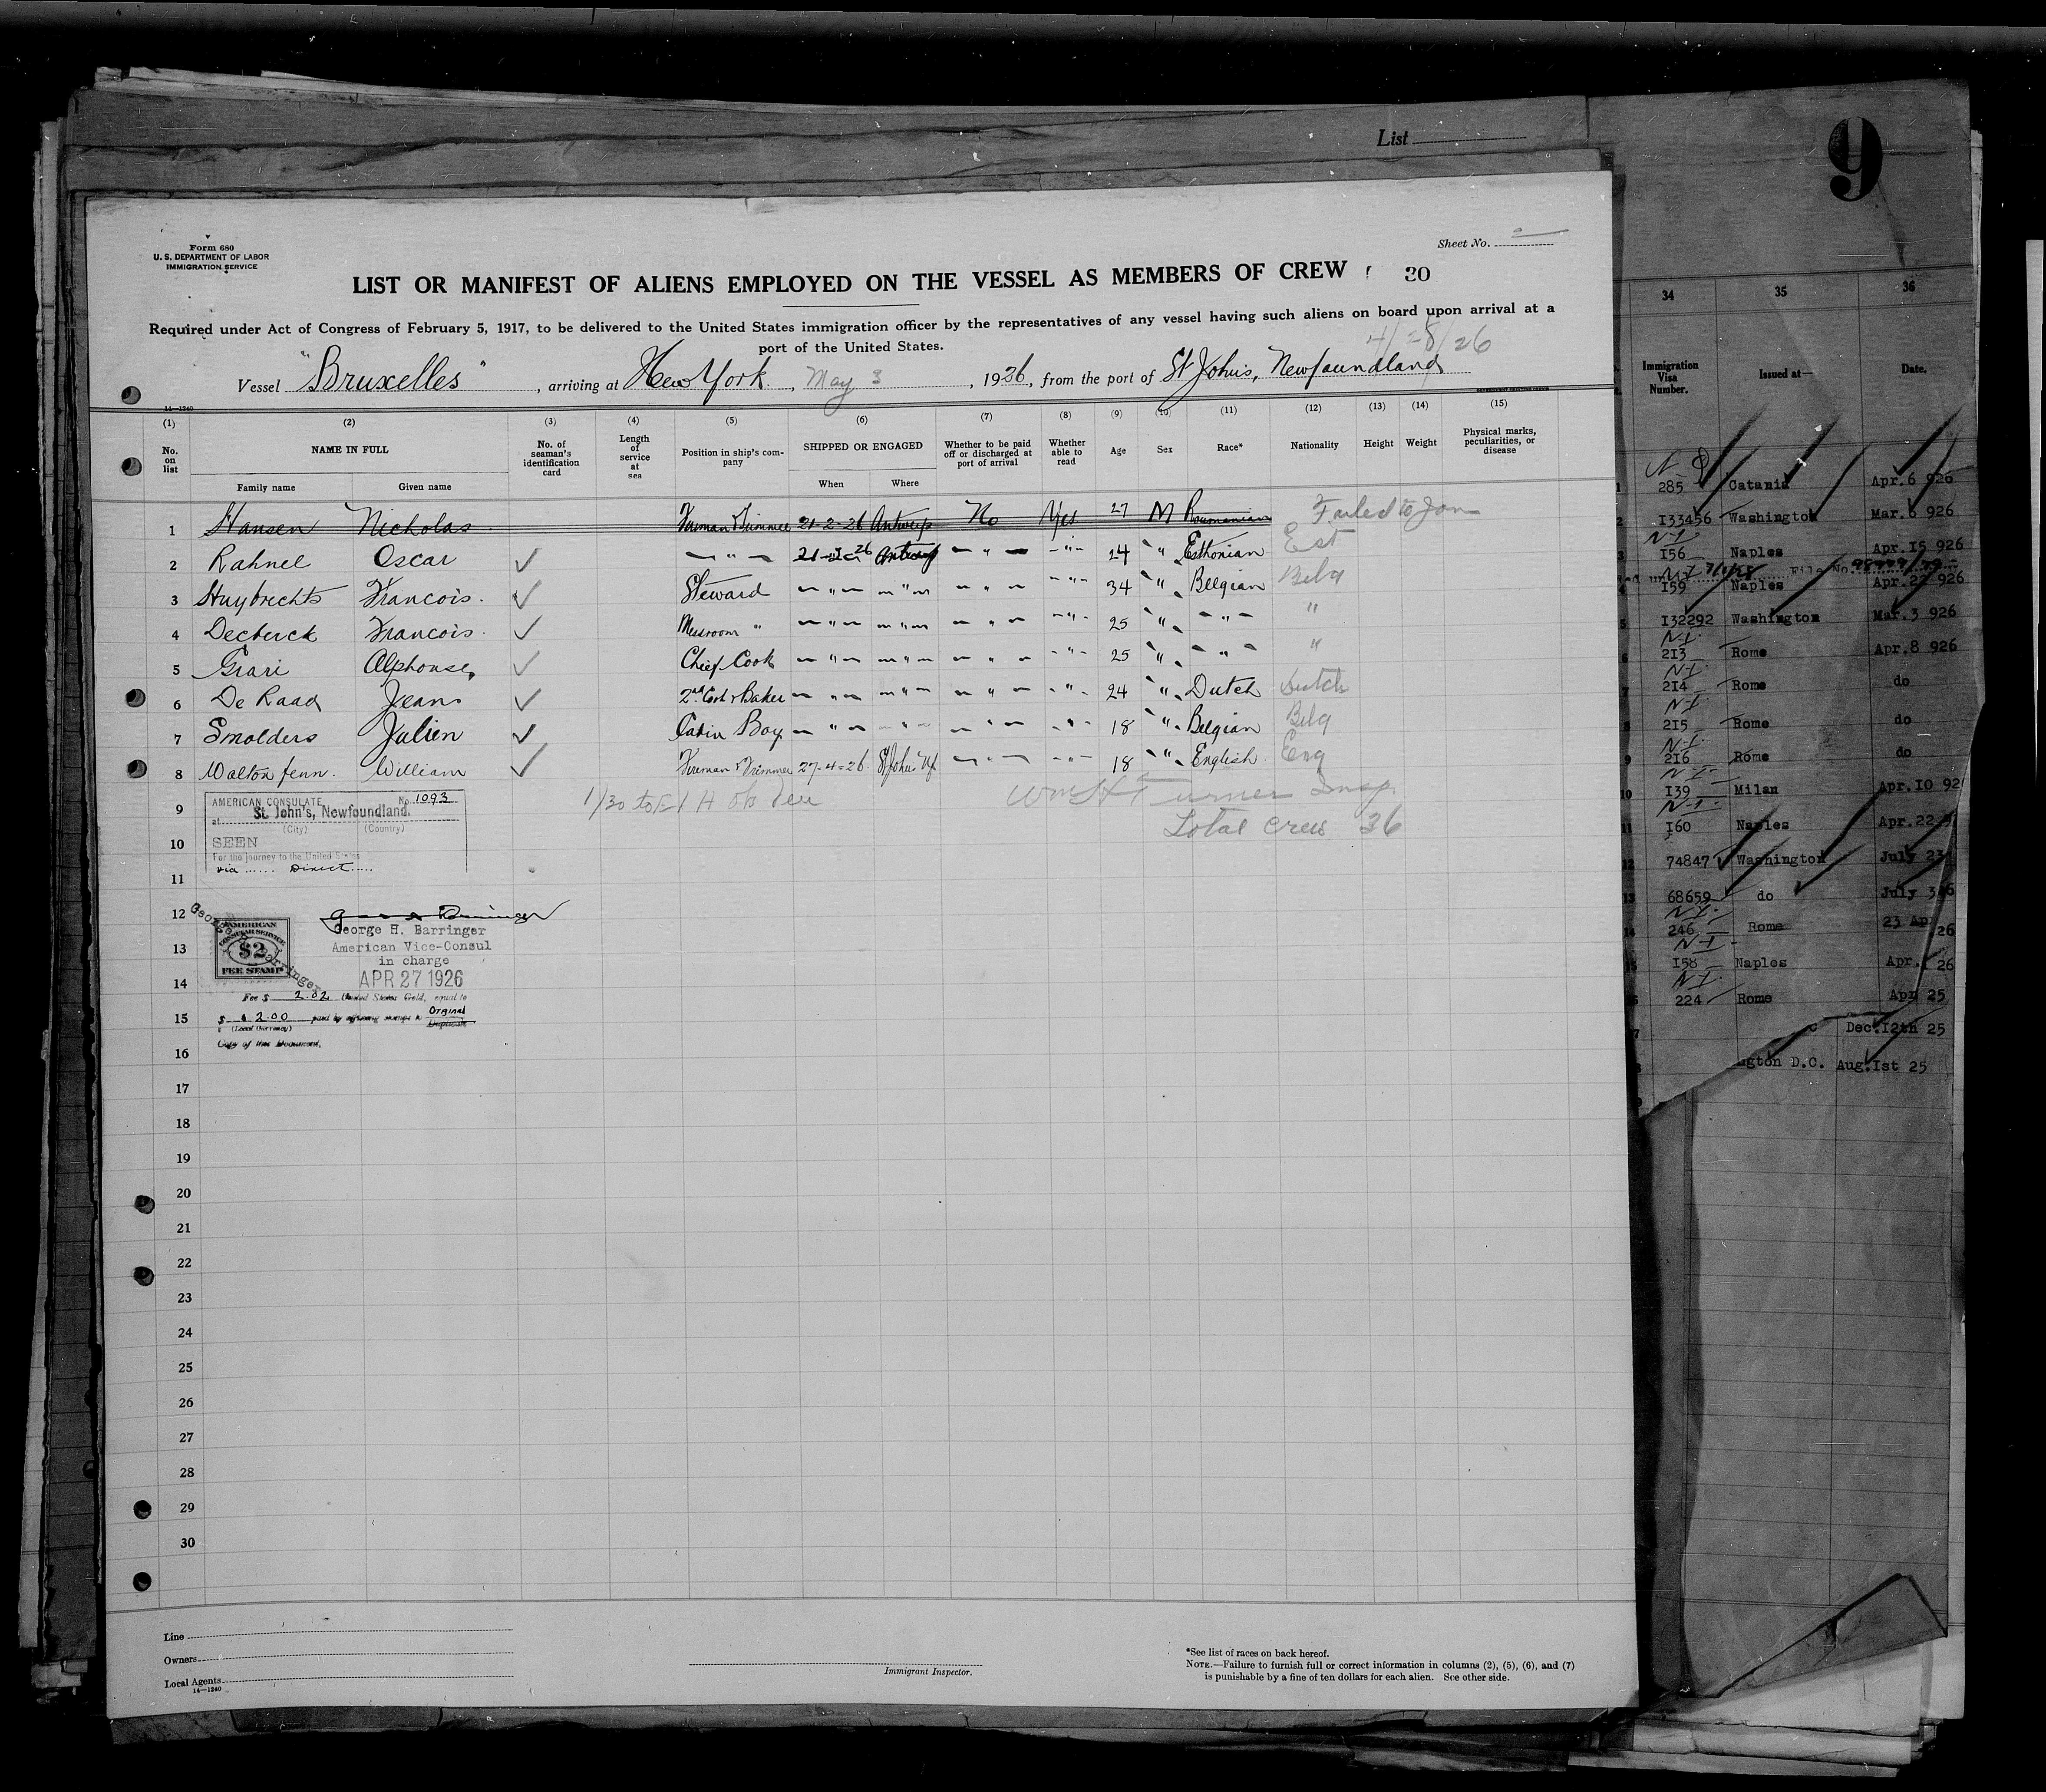 List
9
Form 680
U. S. DEPARTMENT OF LABOR
IMMIGRATION SERVICE
Sheet No.
LIST OR MANIFEST OF ALIENS EMPLOYED ON THE VESSEL AS MEMBERS OF CREW 30
Required under Act of Congress of February 5, 1917, to be delivered to the United States immigration officer by the representatives of any vessel having such aliens on board upon arrival at a
port of the United States.
4/28/26
Vessel "Bruxelles", arriving at New York, May 3, 1926, from the port of St Johns, Newfoundland
14-1240
(1) (2) (3) (4) (5) (6) (7) (8) (9) (10) (11) (12) (13) (14) (15)
No. on list NAME IN FULL No. of seaman's identification card Length of service at sea Position in ship's company SHIPPED OR ENGAGED Whether to be paid off or discharged at port of arrival Whether able to read Age Sex Race* Nationality Height Weight Physical marks, peculiarities, or disease
Family name Given name When Where
1 Hansen Nicholas Fireman & Trimmer 21-2-26 Antwerp No Yes 27 M Roumanian Failed to Join
2 Rahnel Oscar ✓ — " — 21-2-26 Antwerp — " — — " — 24 " Esthonian Est
3 Huybrechts Francois. ✓ Steward — " — — " — — " — — " — 34 " Belgian Belg
4 Francois. ✓ Messroom " — " — — " — — " — — " — 25 " — " — "
5 Grari Alphonse ✓ Chief Cook — " — — " — — " — — " — 25 " — " — "
6 De Raad Jean ✓ 2nd Cook & Baker — " — — " — — " — — " — 24 " Dutch Dutch
7 Smolders Julien ✓ Cabin Boy — " — — " — — " — — " — 18 " Belgian Belg
8 Walton fenn. William ✓ Fireman & Trimmer 27-4-26 St Johns Nf — " — — " — 18 " English Eng
9 Wm H Turner Insp.
Total Crew 36
AMERICAN CONSULATE No. 1093
at St. John's, Newfoundland.
(City) (Country)
10 SEEN
For the journey to the United States
via ...... Direct .....
11
12
George H. Barringer
AMERICAN
CONSULAR SERVICE
$2
FEE STAMP
George H. Barringer
13 American Vice-Consul
in charge
14 APR 27 1926
Fee $ 2.02 (United States Gold, equal to
15 $ 2.00 paid by affixing stamps to Orginal
(Local Currency) Duplicate
Copy of this Document.
16
17
18
19
20
21
22
23
24
25
26
27
28
29
30
Line
Owners
Local Agents
14-1240
Immigrant Inspector.
*See list of races on back hereof.
NOTE.—Failure to furnish full or correct information in columns (2), (5), (6), and (7)
is punishable by a fine of ten dollars for each alien. See other side.
34 35 36
Immigration Visa Number. Issued at— Date.
285 Catania Apr.6 926
I33456 Washington Mar.6 926
I56 Naples Apr.I5 926
I59 Naples Apr.22 926
I32292 Washington Mar.3 926
2I3 Rome Apr.8 926
2I4 Rome do
2I5 Rome do
2I6 Rome do
I39 Milan Apr.I0 92
I60 Naples Apr.22
74847 Washington July 23
68659 do July 3
246 Rome 23 Ap 26
I58 Naples Apr. 26
224 Rome Apr 25
Dec.I2th 25
ngton D.C. Aug.Ist 25